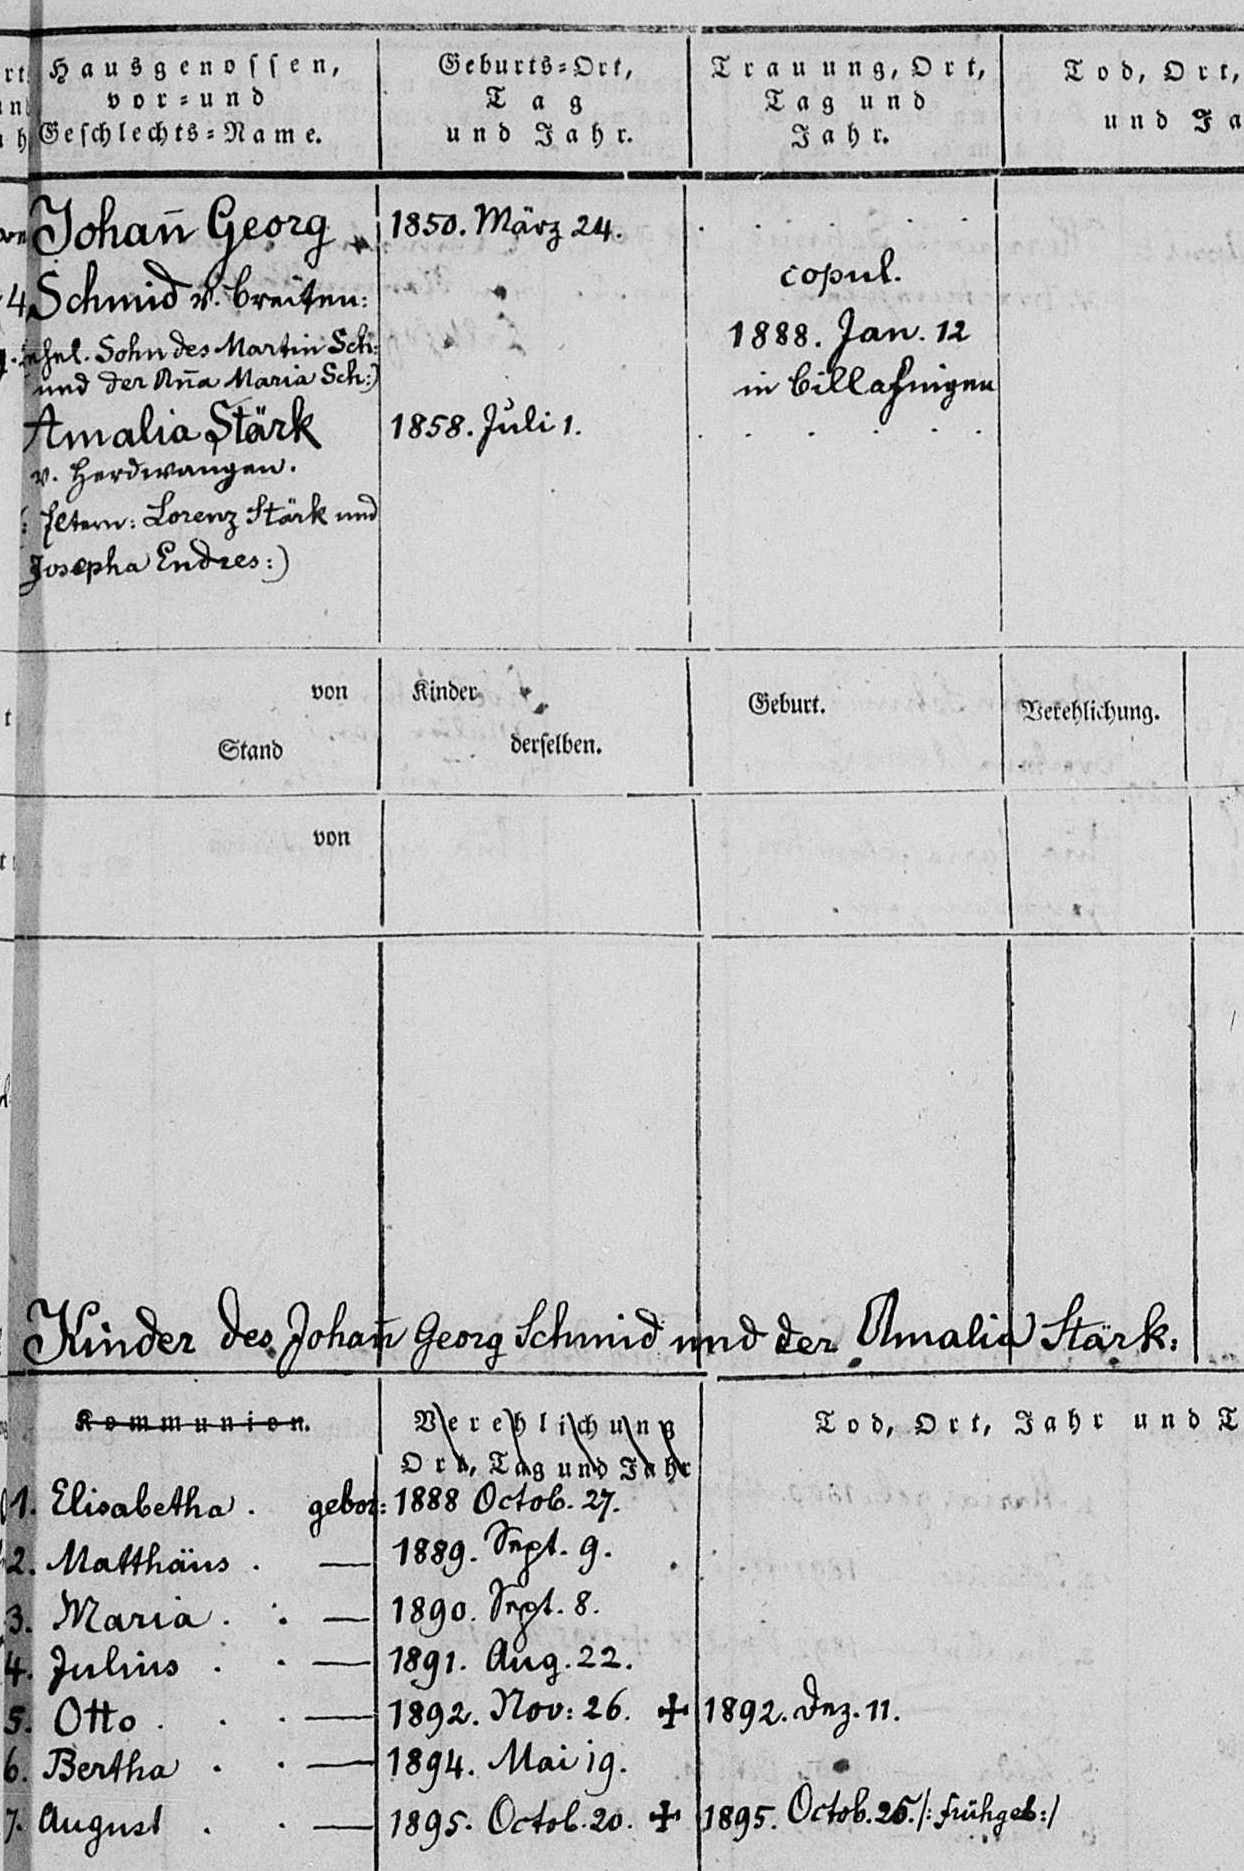 Hausgenossen, Geburts=Ort, Trauung, Ort, Tod, Ort,
vor=und Tag Tag und und Ja
Geschlechts=Name. und Jahr. Jahr.
Johan̄ Georg 1850. März 24.
Schmid v. Breiten: copul.
ehel. Sohn des Martin Sch: 1888. Jan. 12
und der An̄a Maria Sch:) in Billafingen
Amalia Stärk 1858. Juli 1.
v. Herdwangen.
(: Eltern: Lorenz Stärk und
Josepha Endres:)
von Kinder Geburt. Verehlichung.
Stand derselben.
von
Kinder des Johan̄ Georg Schmid und der Amalia Stärk:
Kommunion. Verehlichung Tod, Ort, Jahr und T
Ort, Tag und Jahr
1. Elisabetha . gebor: 1888 Octob. 27.
2. Matthäus . — 1889. Sept. 9.
3. Maria . . — 1890. Sept. 8.
4. Julius . . — 1891. Aug. 22.
5. Otto . . . — 1892. Nov: 26. ✠ 1892. Dez. 11.
6. Bertha . . — 1894. Mai 19.
7. August . . — 1895. Octob. 20. ✠ 1895. Octob. 25. /: frühgeb:/